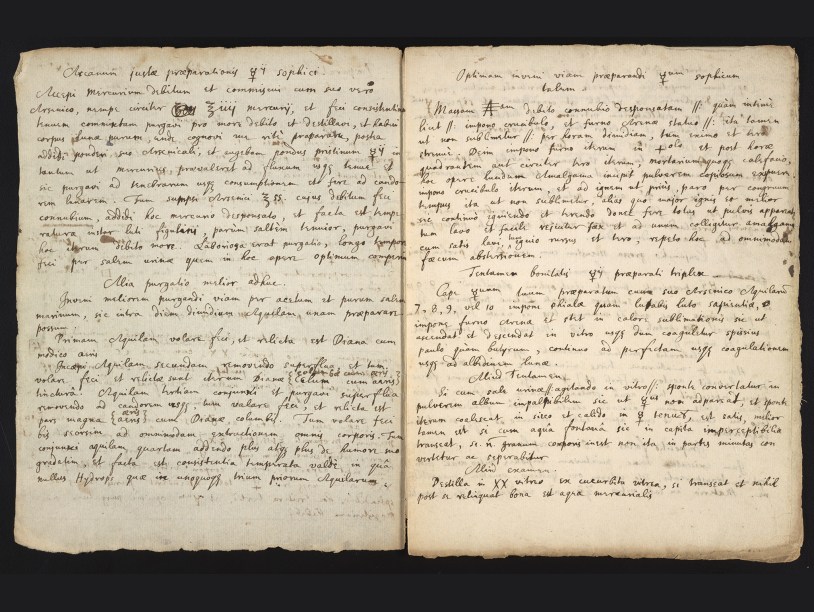 Arcanum justæ præparationis ☿ÿ sophici
Accepi mercurium debitum et commiscui cum suo vero
Arsenico, nempe circiter ℥ iiij mercurij, et feci consistentiam
tenuem commixtam purgavi pro more debito et destillavi, et habui
corpus Lunæ purum, unde cognovi me ritè præparasse, postea
addidi ponderi suo Arsenicali, et augebam pondus pristinum ☿ÿ in
tantum ut mercurius prævaleret ad fluxum usq tenue et
sic purgavi ad tenebrarum usq consumptionem et fere ad cando
rem lunarem. Tum sumpsi Arsenici ℥ss. cujus debitum feci
connubium, addidi hoc mercurio desponsato, et facta est tempe
ratura instar luti figularis, parùm saltèm tenuior, purgavi
hoc iterum debito more. Laboriosa erat purgatio, longo tempore
feci per salem urinæ quem in hoc opere optimum comperi
Alia purgatio melior adhuc.
Inveni meliorem purgandi viam per acetum et purum salem
marinum, sic intra diem dimidium Aquilam unam præparare
possum
Primam Aquilam volare feci, et relicta est Diana cum
modico æris
Incepi Aquilam secundam removendo superflua et tum
volare feci et relictæ sunt iterum Dianæ columbæ cum æris
tincturâ. Aquilam tertiam conjunxi et purgavi superflua
removendo ad candorem usq tum volare feci, et relicta est
pars magna æris cum Dianæ columbis. Tum volare feci
bis seorsim ad ommodam extractionem omnis corporis. Tum
conjunxi aquilam quartam addendo plus atq plus de humore suo
gradatim, et facta est consistentia temperata valdè in quâ
nullus Hydrops quæ in unoquoq trium priorum Aquilarum
Optimam inveni viam præparandi ☿um sophicum
talem
Massam amalgamatam debito connubio desponsatam // quàm intimè
licet // impono crucibulo, et furno Arenæ statuo // ita tamen
ut non sublimetur // per horam dimidiam, tum eximo et
strenuè Dein impono furno iterum in et post horæ
quadrandem aut circiter tero iterum, mortarium quoq calefacio,
hoc opere laudum Amalgama incipit pulverem copiosum expuere,
impono crucibulo iterum, et ad ignem ut priùs, paro per congruum
tempus ita ut non sublimetur, aliàs quo major ignis eo melior
sic continuo igniendo et terendo donec ferè totus ut pulvis appareat
tum lavo et facilè rejicitur fæx et ad unum colligitur amalgama
cum satis lavi, ignio rursus et tero, repeto hoc ad ommodam
fæcum abstersionem.
Tentamen bonitatis ☿ÿ præparati triplex
Cape ☿um tuum præparatum cum suo Arsenico Aquilarum
7, 8, 9, vel 10 impone phialæ quam lutabis luto sapientiæ,
impone furno Arenæ et stet in calore sublimationis sic ut
ascendat et descendat in vitro usq dum coaguletur spissius
paulò quam butyrum, continuo ad perfectam usq coagulationem
usq ad albedinem lunæ.
Aliud Tentamen.
Si cum sale urinæ // agitando in vitro // sponte convertatur in
pulverem album impalpabilem sic ut ☿us non appareat, et sponte
iterum coalescat in sicco et calido in ☿ tenuem est satis, melior
tamen est si cum aquâ fontanâ sic in capita imperceptibilia
transeat, si n. granum corporis inest non ita in partes minutas con
vertetur ac separabitur
Aliud examen.
Destilla in XX vitreo ex cucurbita vitrea, si transeat et nihil
post se reliquat bona est aqua mercurialis